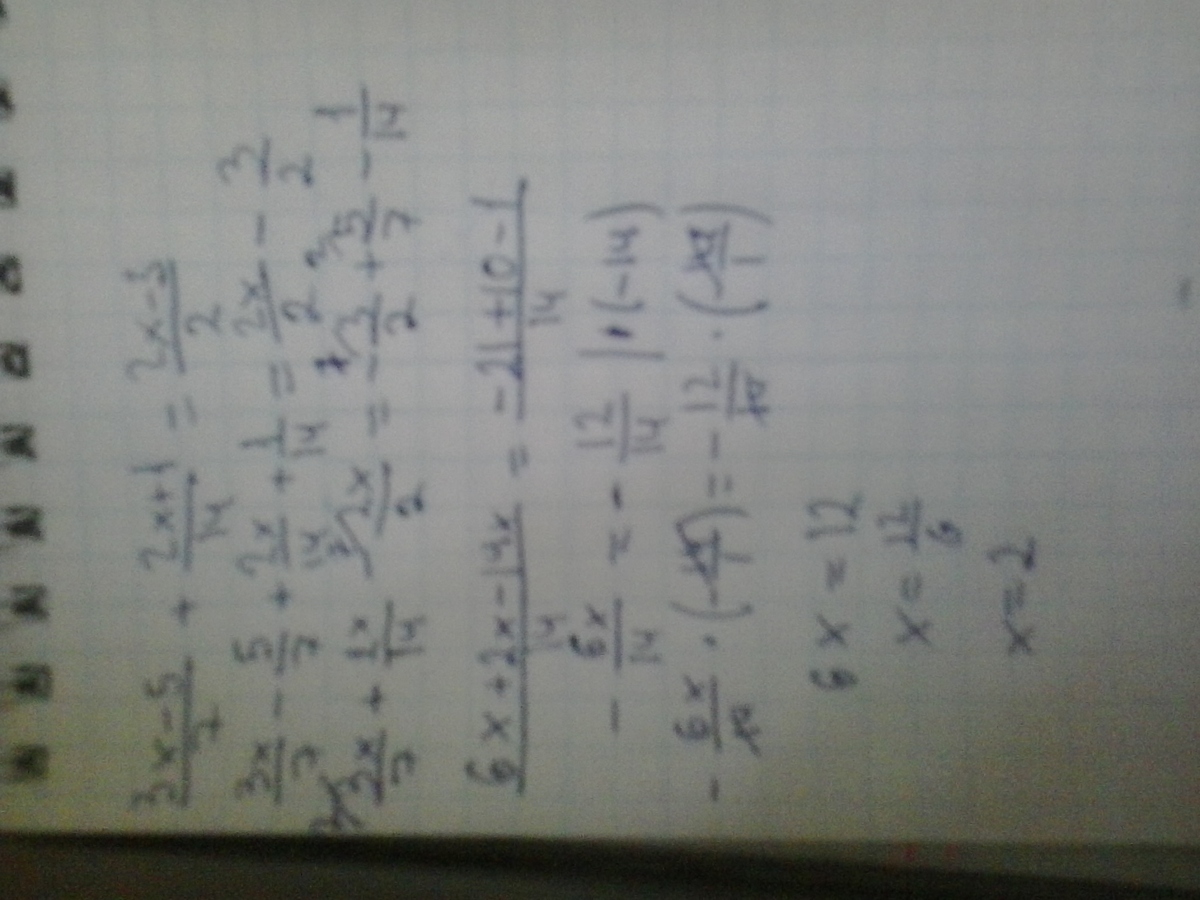 (3x-5)/7 + (2x+1)/14 = (2x-3)/2
3x/7 - 5/7 + 2x/14 + 1/14 = 2x/2 - 3/2
3x/7 + 2x/14 - 2x/2 = - 3/2 + 5/7 - 1/14
(6x+2x-14x)/14 = (-21+10-1)/14
- 6x/14 = - 12/14 | · (-14)
- 6x/14 · (-14/1) = - 12/14 · (-14/1)
6x = 12
x = 12/6
x = 2